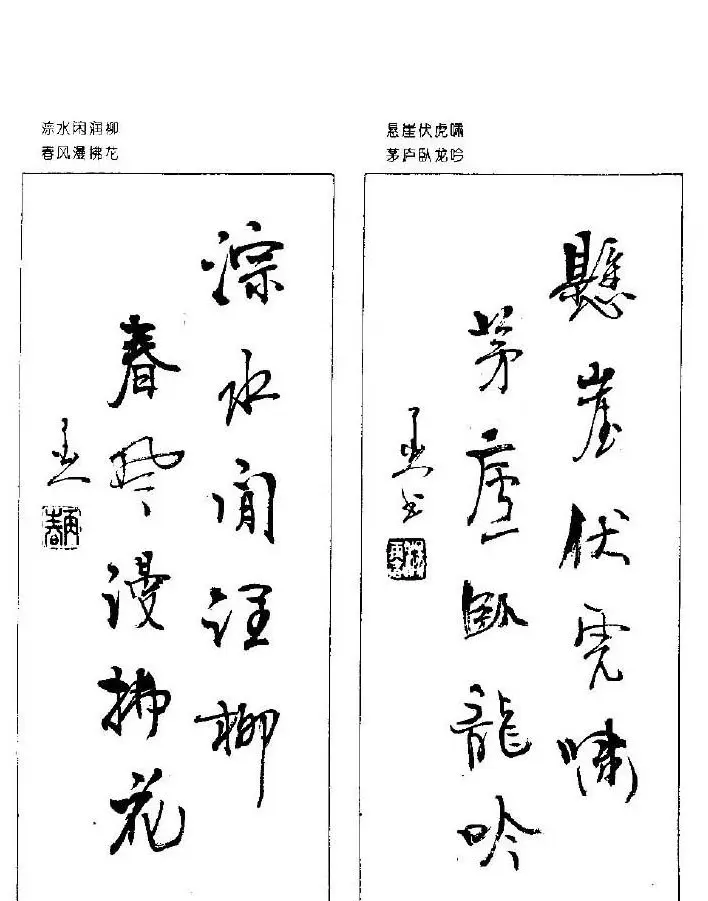 淙水闲润柳
春风漫拂花
淙水閒潤柳
春風漫拂花
悬崖伏虎啸
茅庐卧龙吟
懸崖伏虎嘯
茅廬臥龍吟